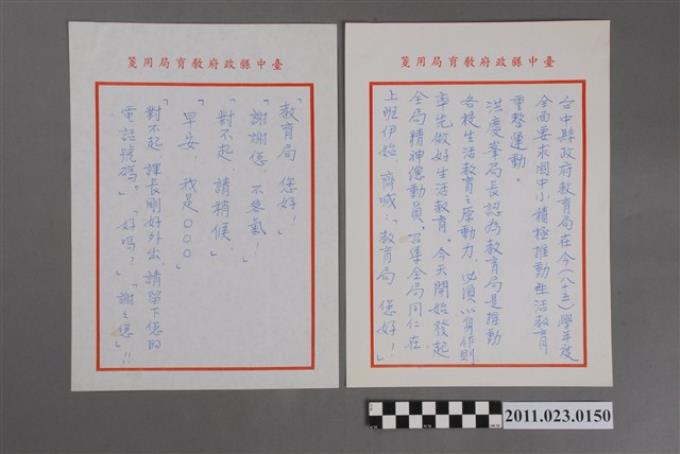 箋用局育教府政縣中臺
台中縣政府教育局在今(八十三)學年度
全面要求國中小積極推動生活教育
重整運動。
洪慶峯局長認為教育局是推動
各校生活教育之原動力,必須以身作則,
率先做好生活教育。今天開始發起
全局精神總動員,召導全局同仁在
上班伊始,齊喊:「教育局 您好!」
箋用局育教府政縣中臺
「教育局 您好!」
「謝謝您,不客氣!」
「對不起,請稍候」
「早安,我是○○○」
「對不起,課長剛好外出,請留下您的
電話號碼。」「好嗎?」「謝々您」!!
2011.023.0150